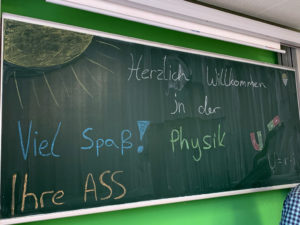 Herzlich Willkommen
in der
Physik
Viel Spaß!
Ihre ASS